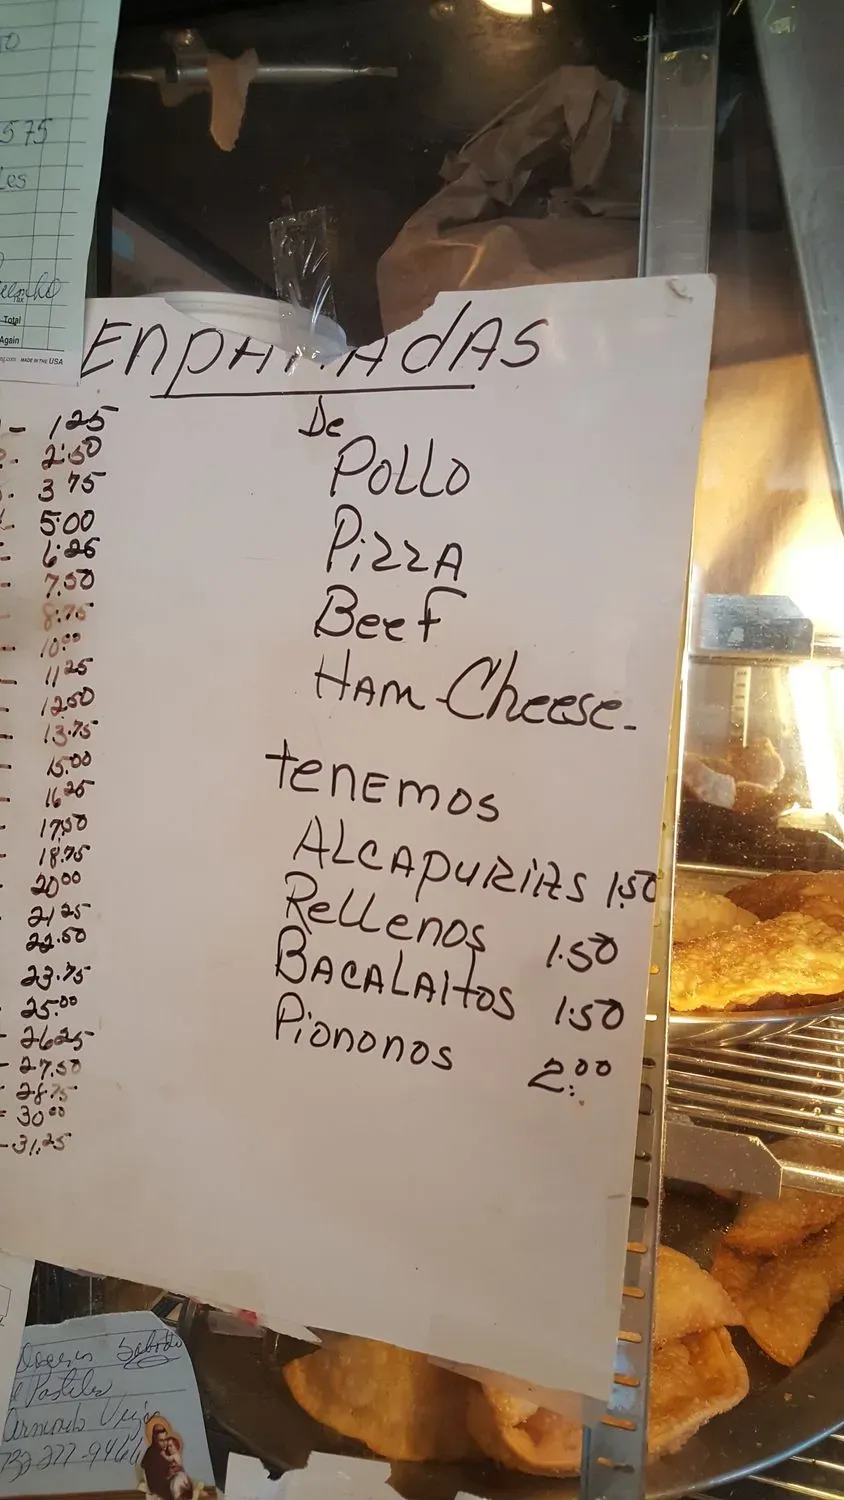 575
les
Total
Again
MADE IN THE USA
EnpAnAdAS
De
Pollo
Pizza
Beef
Ham-Cheese-
tenemos
Alcapurias 1.50
Rellenos 1.50
Bacalaitos 1.50
Piononos 2.00
- 1.25
- 2.50
- 3.75
- 5.00
- 6.25
- 7.50
- 8.75
- 10.00
- 11.25
- 12.50
- 13.75
- 15.00
- 16.25
- 17.50
- 18.75
- 20.00
- 21.25
22.50
23.75
- 25.00
- 26.25
- 27.50
- 28.75
- 30.00
- 31.25
Sabado
Pasteles
Armando